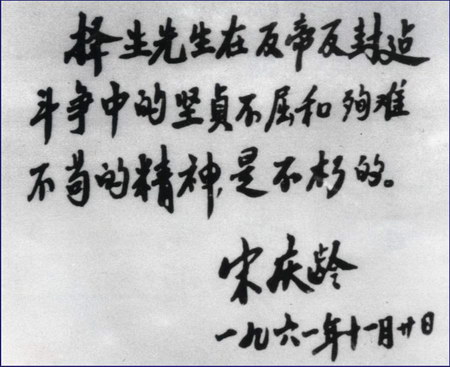 择生先生在反帝反封建
斗争中的坚贞不屈和殉难
不苟的精神,是不朽的。
宋庆龄
一九六一年十一月廿日